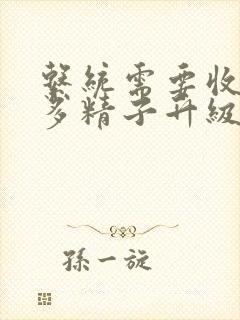 繫統需要收
多精子升級
孫一旋